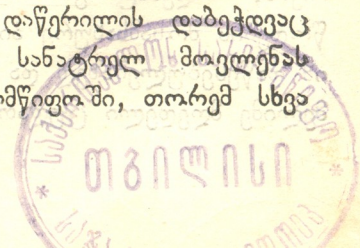 დაწერილის დაბეჭდვაც
სანატრელ მოვლენას
მწიფოში, თორემ სხვა
თბილისი